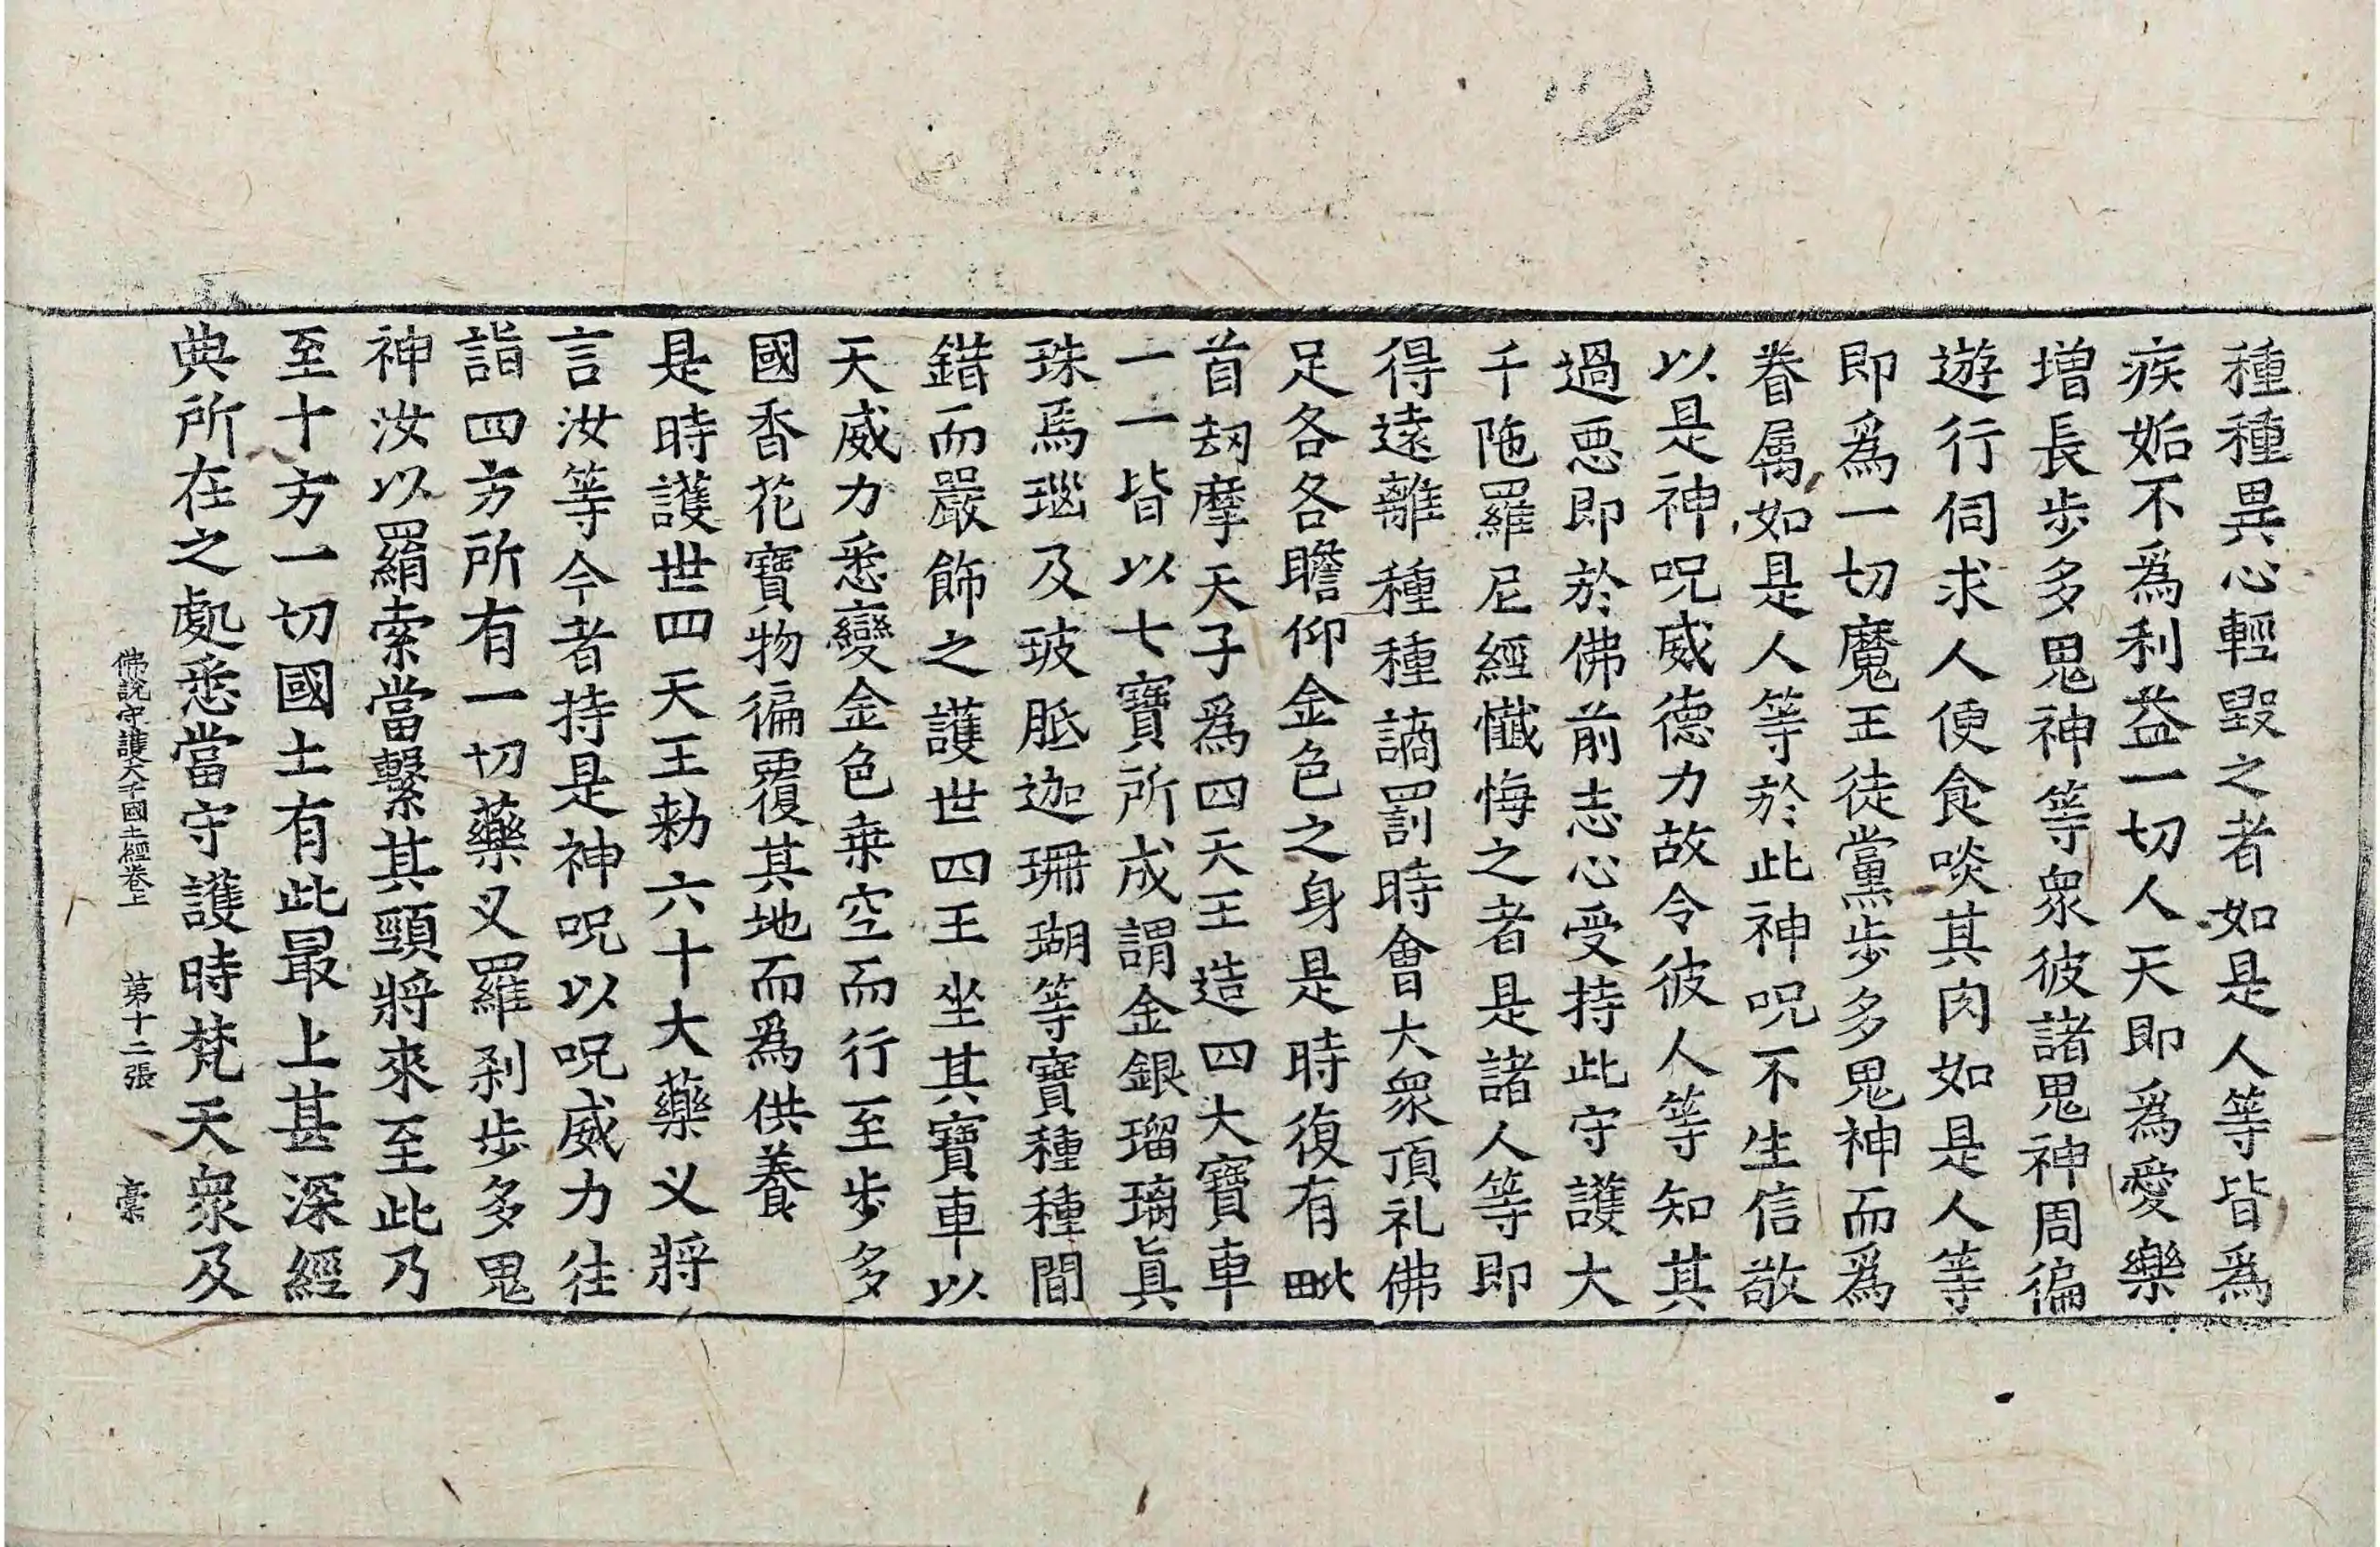 種種異心輕毀之者如是人等皆爲
疾妬不爲利益一切人天即爲愛樂
增長步多鬼神等衆彼諸鬼神周徧
遊行伺求人便食啖其肉如是人等
即爲一切魔王徒黨步多鬼神而爲
眷属如是人等於此神呪不生信敬
以是神呪威德力故令彼人等知其
過惡即於佛前志心受持此守護大
千陁羅尼經懴悔之者是諸人等即
得遠離種種謫罰時會大衆頂礼佛
足各各瞻仰金色之身是時復有毗
首刼摩天子爲四天王造四大寶車
一一皆以七寶所成謂金銀瑠璃真
珠馬瑙及玻胝迦珊瑚等寶種種間
錯而嚴飾之護世四王坐其寶車以
天威力悉變金色乗空而行至步多
國香花寶物徧覆其地而爲供養
是時護世四天王勑六十大藥叉將
言汝等今者持是神呪以呪威力往
詣四方所有一切藥叉羅刹步多鬼
神汝以羂索當繫其頸將來至此乃
至十方一切國土有此最上甚深經
典所在之處悉當守護時梵天衆及
佛說守護大千國土經卷上 第十二張 槀